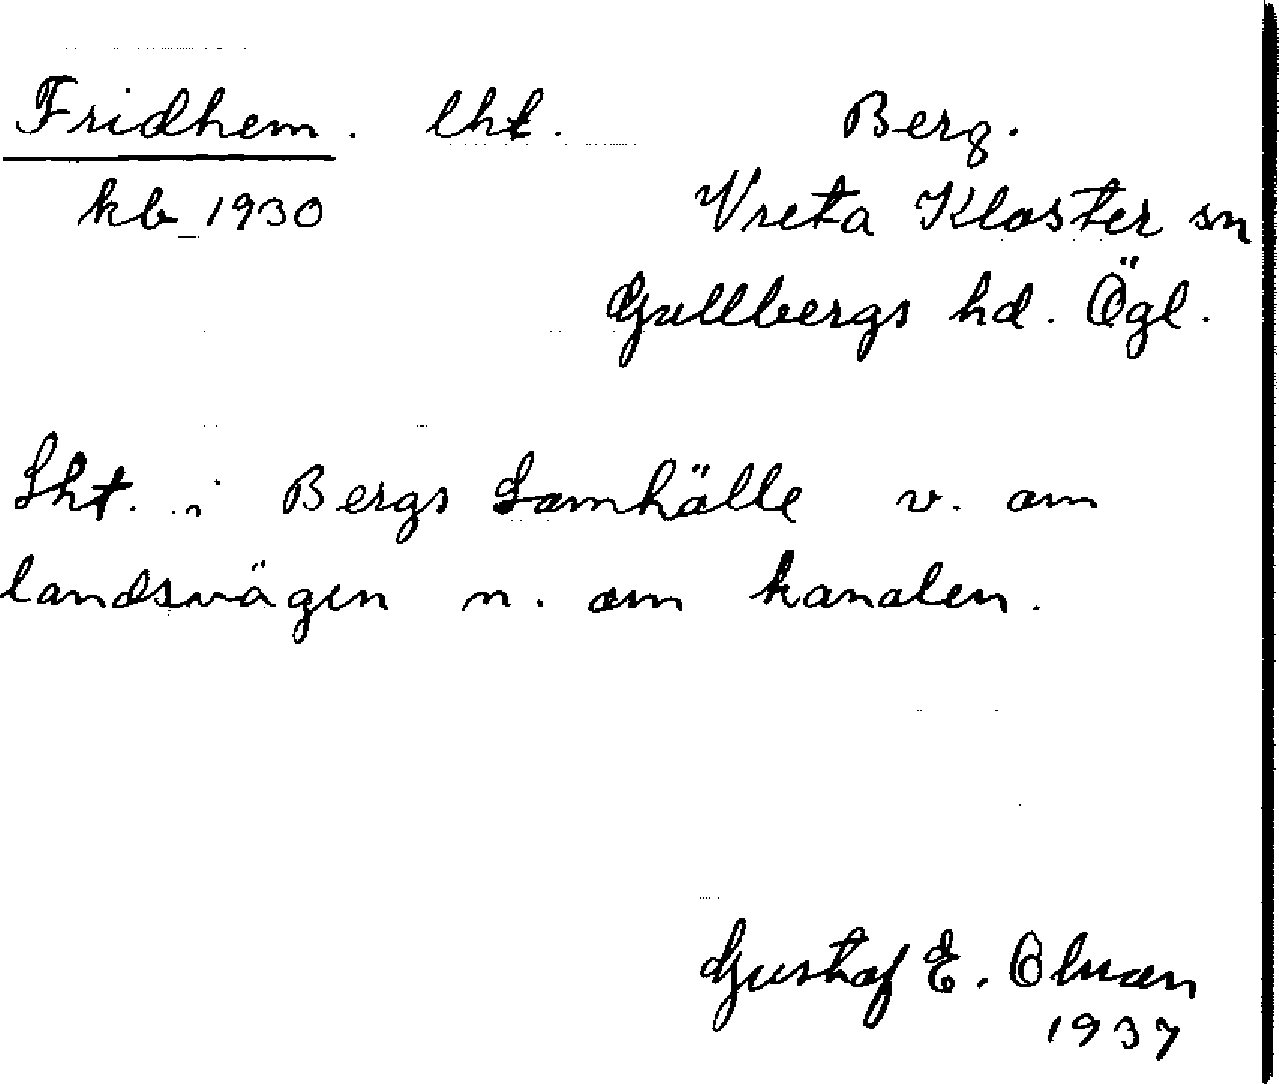 Fridhem. lht. Berg.
kb 1930 Vreta Kloster sn
Gullbergs hd. Ögl.
Lht. i Bergs Samhälle v. om
landsvägen n. om kanalen.
Gustaf E. Olsson
1937